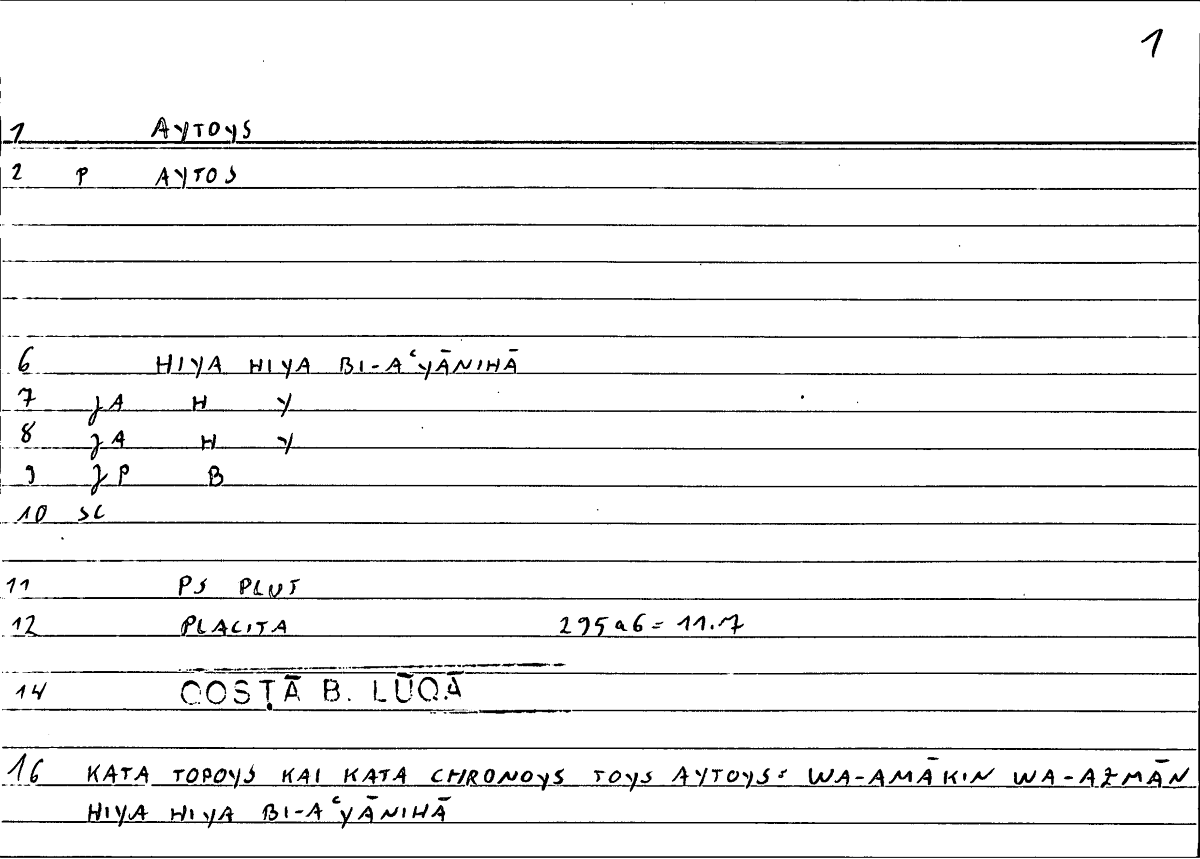 1
1 AYTOYS
2 P AYTOS
6 HIYA HIYA BI-AʿYĀNIHĀ
7 JA H Y
8 JA H Y
9 JP B
10 SC
11 PS PLUT
12 PLACITA 295a6 = 11.7
14 COSṬĀ B. LŪQĀ
16 KATA TOPOYS KAI KATA CHRONOYS TOYS AYTOYS: WA-AMĀKIN WA-AZMĀN
HIYA HIYA BI-AʿYĀNIHĀ